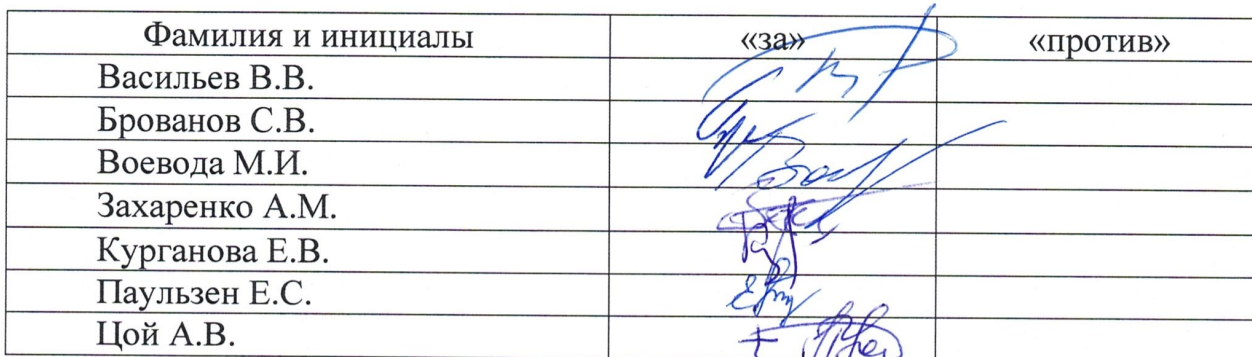 Фамилия и инициалы «за» «против»
Васильев В.В.
Брованов С.В.
Воевода М.И.
Захаренко А.М.
Курганова Е.В.
Паульзен Е.С.
Цой А.В.